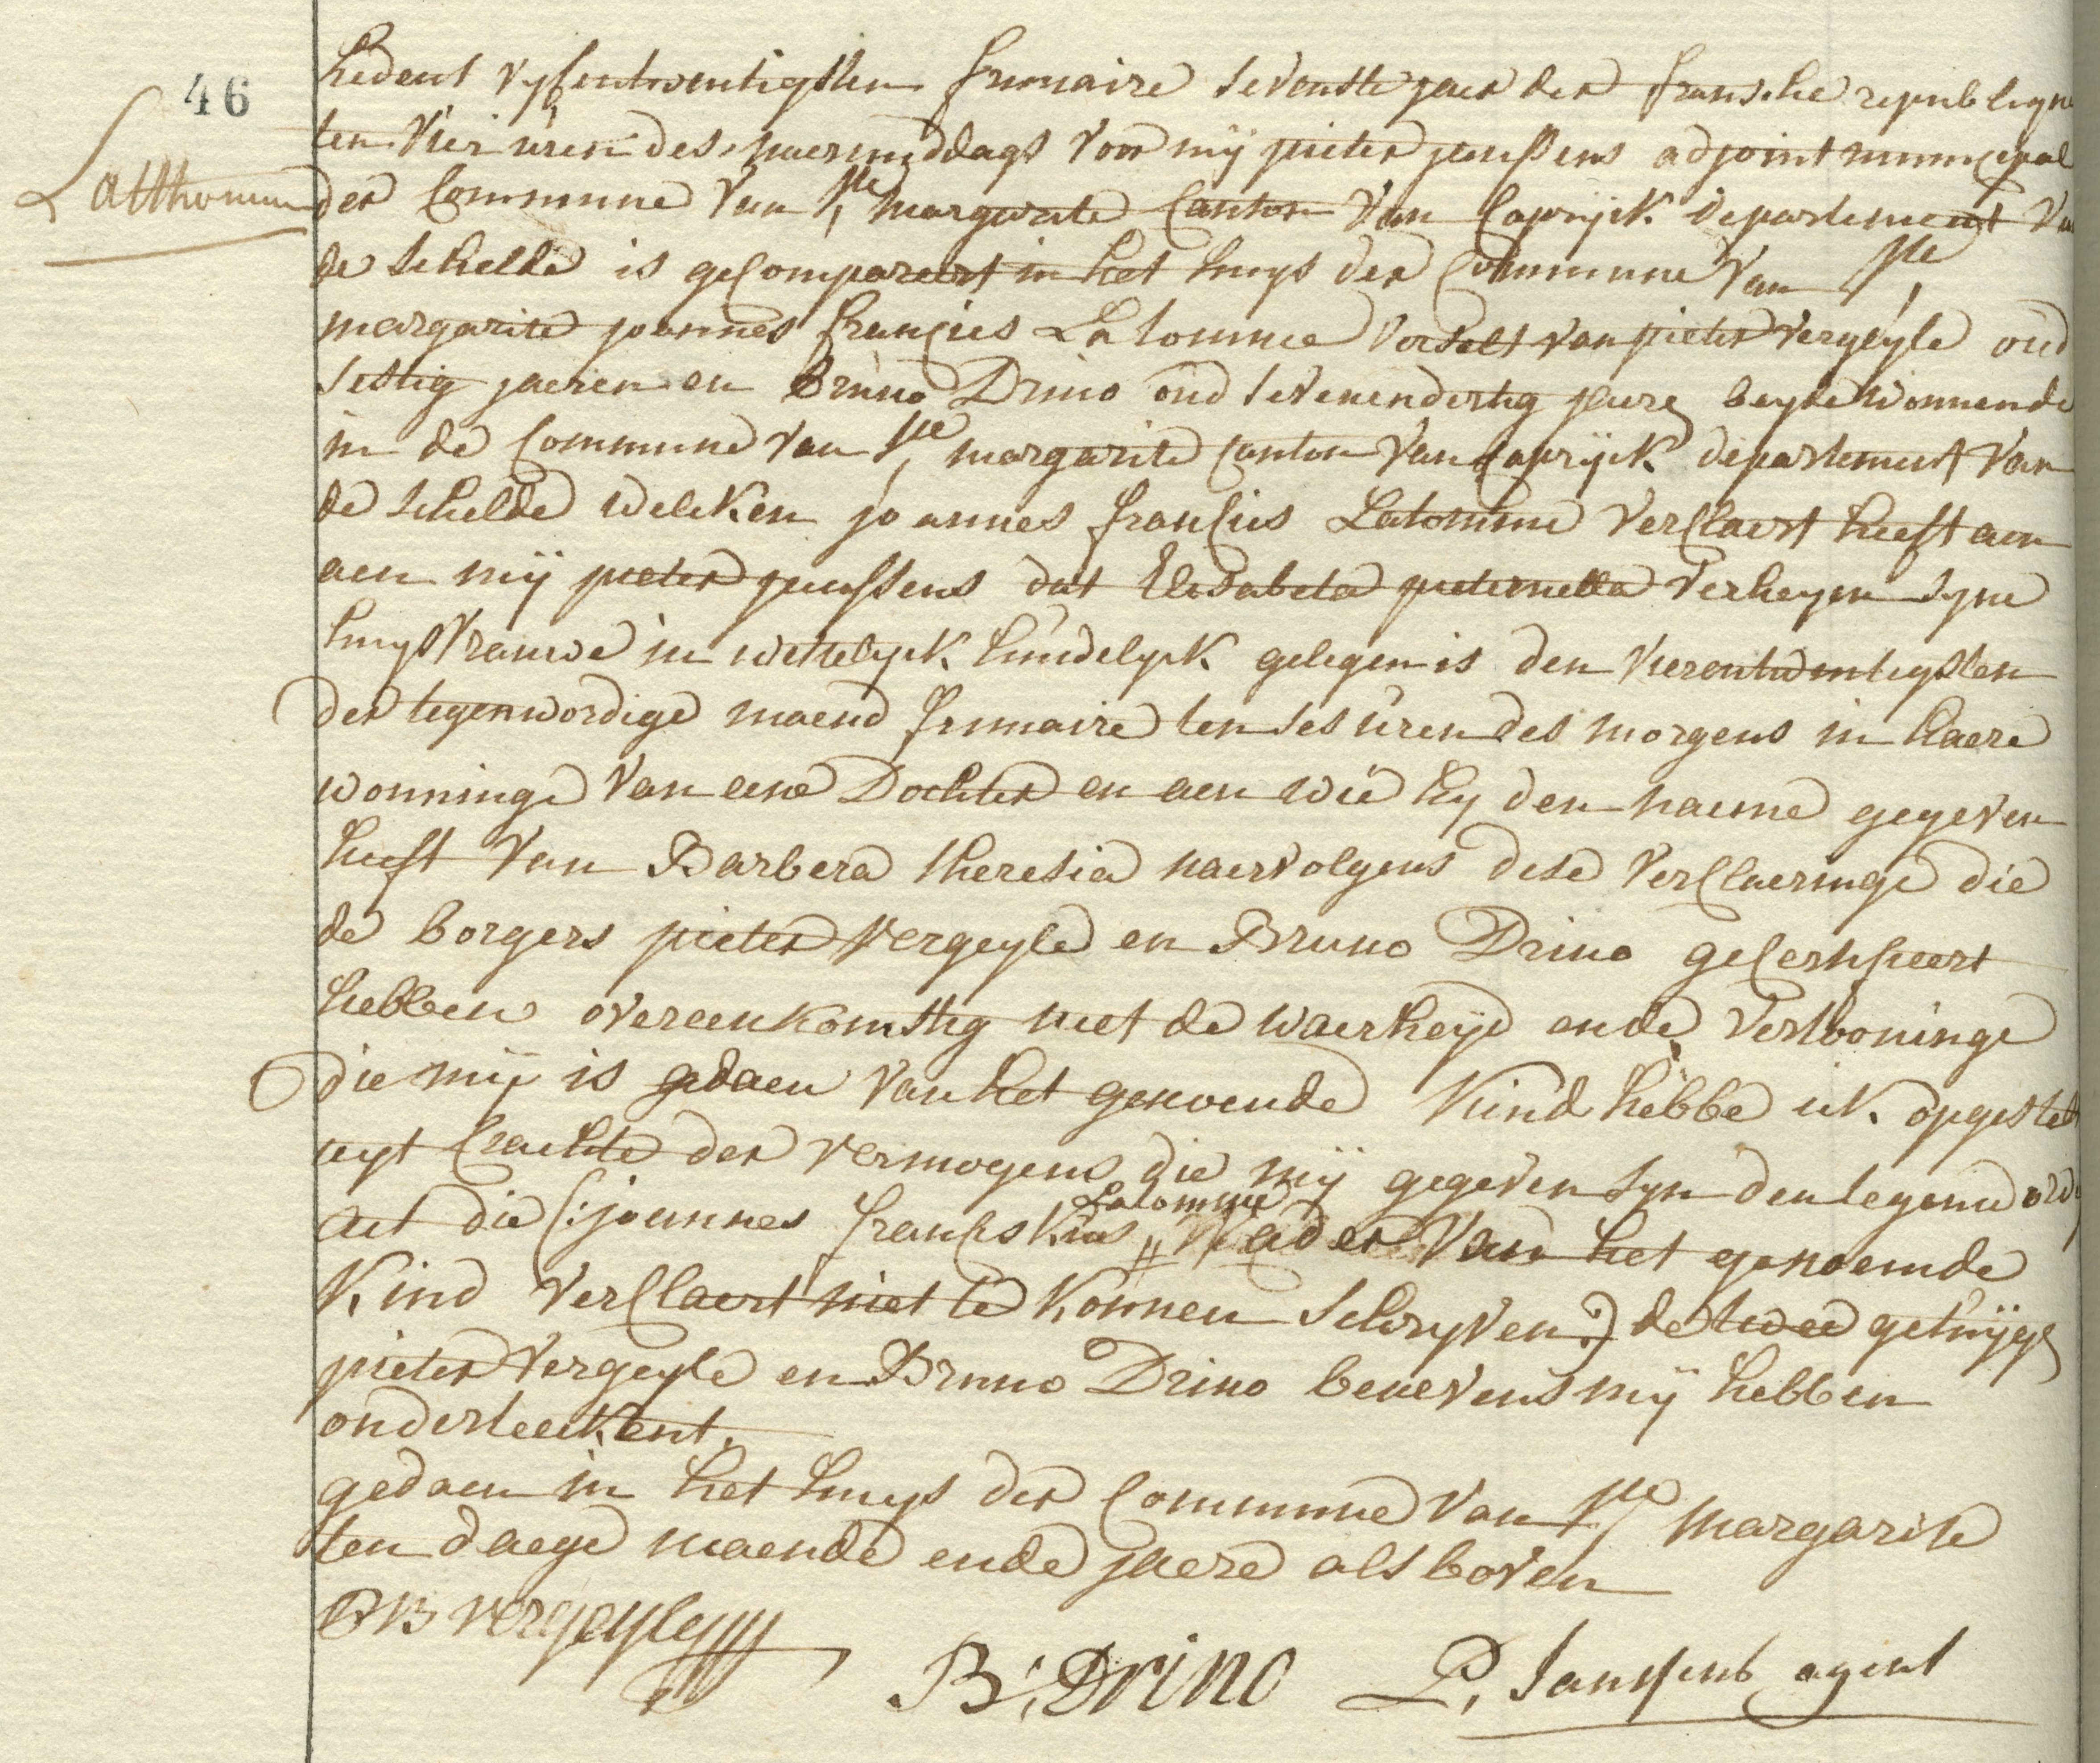 46
Latthomme
hedent vyfentwentigsten frimaire sevenste jaer der fransche republique
ten vier uren des naermiddags voor mij pieter janssens adjoint municipal
der Commune van Ste margarite Canton van Caprijck departement van
de schelde is geCompareert in het huys der Commune van Ste
margarite joannes francies Latomme verselt van pieter vergeyle oud
sestig jaeren en Bruno Drino oud sevenendertig jaere beyde wonnende
in de Commune van Ste margarite Canton van Caprijck departement van
de schelde welcken joannes francies Latomme verClaert heeft aen
aen mij pieter janssens dat Elisabeta pieternella Verheyen syne
huysvrauwe in wettelyck huudelyck gelegen is den vierentwintigsten
der tegenwordige maend frimaire ten ses uren des morgens in haere
wonninge van eene Dochter en aen wie hy den naeme gegeven
heeft van Barbera theresia naervolgens dese verClaeringe die
de borgers pieter vergeyle en Bruno Drino geCertifieert
hebben overeenkomstig met de waerheyd ende vertooninge
die mij is gedaen van het genoemde Kind hebbe ick opgestelt
uyt Crachte der vermogens die mij gegeven syn den tegenwordig
act die (:joannes francisKus Latomme // vader van het genoemde
Kind verClaert niet te konnen schryven:) de twee getuijge
pieter vergeyle en Bruno Drino benevens mij hebben
onderteeckent.
gedaen in het huys der Commune van Ste margarite
ten daege maende ende jaere als boven
vergeyle
B: Drino P. Janssens agent